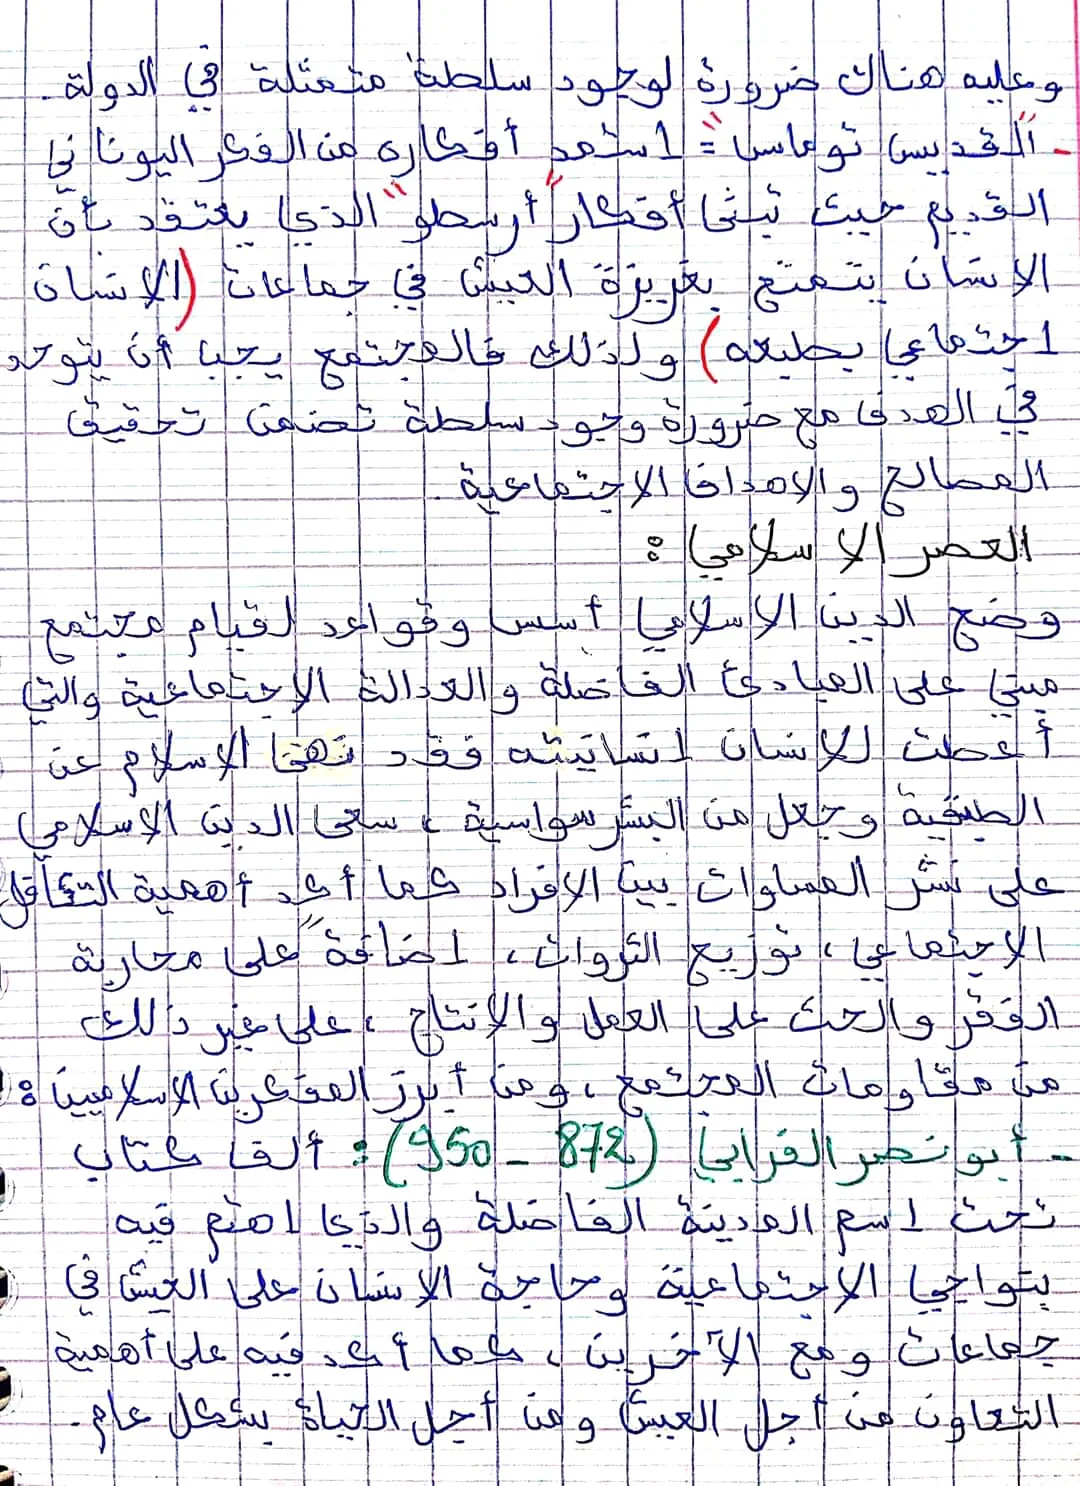 وعليه هناك ضرورة لوجود سلطة متمثلة في الدولة.
- "القديس توماس" = استمد أفكاره من الفكر اليوناني
القديم حيث تبنى أفكار "أرسطو" الذي يعتقد بأن
الانسان يتمتع بغريزة العيش في جماعات (الانسان
اجتماعي بطبعه) ولذلك فالمجتمع يجب أن يتوحد
في الهدف مع ضرورة وجود سلطة تضمن تحقيق
المصالح والاهداف الاجتماعية.
العصر الاسلامي :
وضع الدين الاسلامي أسس وقواعد لقيام مجتمع
مبني على المبادئ الفاضلة والعدالة الاجتماعية والتي
أعطت للانسان انسانيته فقد نهى الاسلام عن
الطبقية وجعل من البشر سواسية ، سعى الدين الاسلامي
على نشر المساوات بين الافراد كما أكد أهمية التكافل
الاجتماعي ، توزيع الثروات ، اضافة على محاربة
الفقر والحث على العمل والانتاج ، على غير ذلك
من مقاومات المجتمع ، ومن أبرز المفكرين الاسلاميين :
- أبو نصر الفرابي (872 - 950) : ألف كتاب
تحت اسم المدينة الفاضلة والذي اهتم فيه
بنواحي الاجتماعية وحاجة الانسان على العيش في
جماعات ومع الآخرين ، كما أكد فيه على أهمية
التعاون من أجل العيش ومن أجل الحياة بشكل عام .